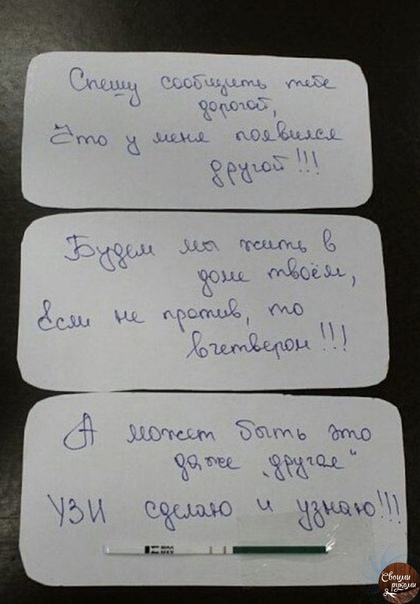 Спешу сообщить тебе
дорогой,
Что у меня появился
другой!!!
Будем мы жить в
доме твоём,
Если не против, то
вчетвером!!!
А может быть это
даже "другая"
УЗИ сделаю и узнаю!!!
Своими
руками